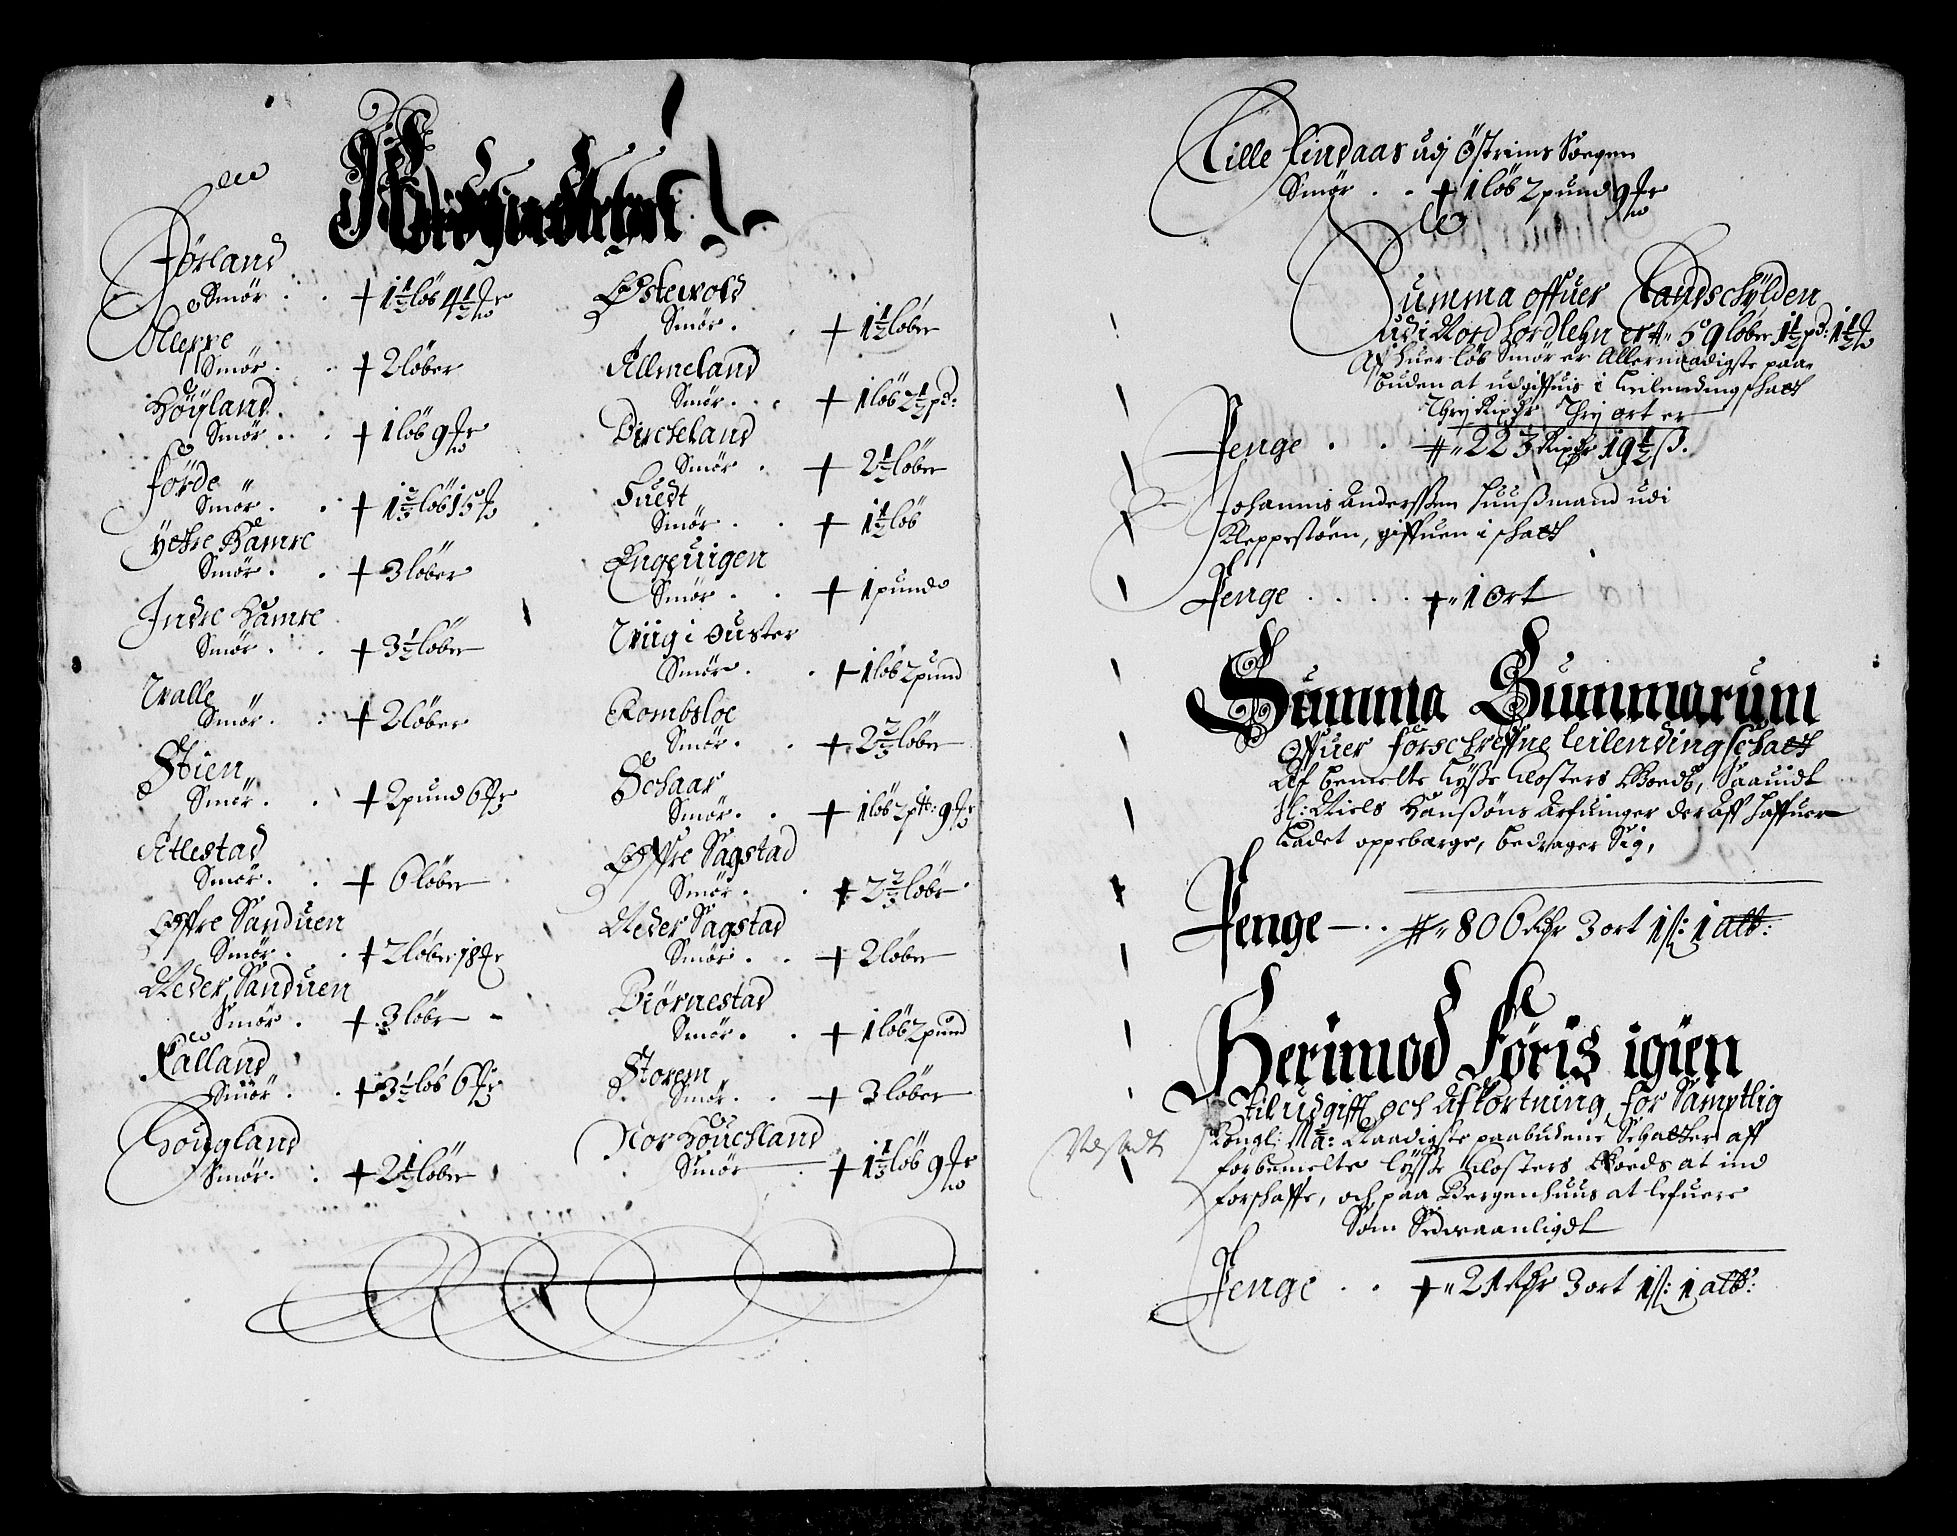 Førland
Smør . . + 1½ løb 4½ ℔
Smør . . + 2 løber
Høÿland
Smør . . + 1 löb 9 ℔
Förde
Smør . . + 1⅔ löb 15 ℔
Ÿtre Hamre
Smør . . + 3 löber
Indre Hamre
Smør . . + 3½ löber
Walle
Smør . . + 2 löber
Stien
Smør . . + 2 pund 6 ℔
Atlestad
Smør . . + 6 löber
Øffre Sanduen
Smør . . + 2 löber 18 ℔
Neder Sanduen
Smør . + 3 löber
Kalland
Smør . . + 3½ löb 6 ℔
Hougland
Smør . . + 2½ löber
Østevold
Smør . . + 1½ löber
Almeland
Smør . . + 1 löb 2½ pd:
Birckeland
Smør . + 2½ löber
Tuedt
Smør . . + 1½ löb
Engeuigen
Smør . . + 1 pund
Wiig i Ouster
Smør . . + 1 löb 2 pund
Rombsloe
Smør . . + 2⅔ löber
Schaar
Smør . . + 1 löb 2 pd: 9 ℔
Øffre Sagstad
Smør . . + 2⅔ löbr
Neder Sagstad
Smør . . + 2 löber
Biørnestad
Smør . . + 1 löb 2 pund
Storem
Smør . . + 3 löber
Nor Houchland
Smør . + 1⅓ löb 9 ℔
Lille Lindaas udj Østreims Sogen
Smør . . + 1 löb 2 pund 9 ℔
Summa offuer Landschÿlden
udi Nordhordlehn er # 59 löber 1½ pd: 1½ ℔
Af huer löb Smør er Allernaadigste paa
buden at udgiffuis i Leilendingschatt
Thrj Rixdr Thrj ort er
Penge . . # 223 Rixdr 19½ ß.
Johannis Anderssen Huußmand udi
Kleppestöen, giffuen i schatt
Penge . . . . + 1 Ort
Summa Summarum
Offuer forschreffne leilendingschatt
Af bemelte Lÿsße Closters Goeds, Saauidt
Sl: Niels Hanßøns Arfuinger der aff haffuer
Ladet oppebarge, bedrager Sig,
Penge — . . # 806 Rdr 3 ort 1 ß: 1 alb:
Herimod føris igien
Til udgifft och Afkortning, for Samptlig
Kongl: Ma: Naadigste paabudene Schatter aff
forbemelte lÿsße Closters Goeds at ind
forschaffe, och paa Bergenhuus at lefuere
Som Sedwaanligdt
Penge . . + 21 Rdr 3 ort 1 ß: 1 alb: